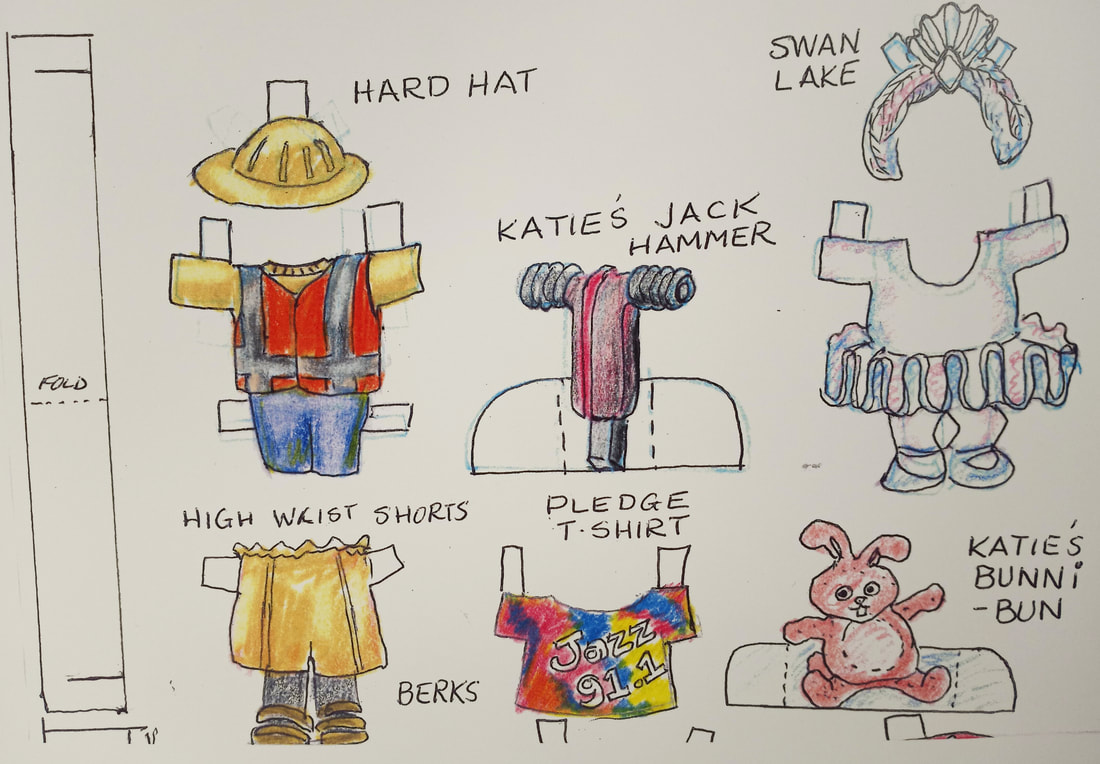 HARD HAT
SWAN
LAKE
KATIE'S JACK
HAMMER
FOLD
HIGH WAIST SHORTS
PLEDGE
T-SHIRT
Jazz
91.1
KATIE'S
BUNNi
-BUN
BERKS